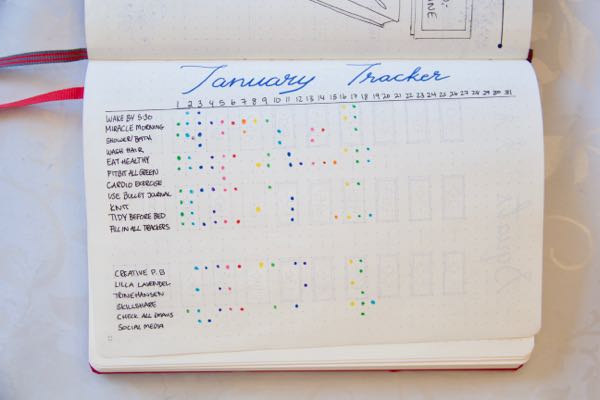 INE
January Tracker
1 2 3 4 5 6 7 8 9 10 11 12 13 14 15 16 17 18 19 20 21 22 23 24 25 26 27 28 29 30 31
WAKE BY 5:30
MIRACLE MORNING
SHOWER/BATH
WASH HAIR
EAT HEALTHY
FITBIT ALL GREEN
CARDIO EXERCISE
USE BULLET JOURNAL
KNIT
TIDY BEFORE BED
FILL IN ALL TRACKERS
CREATIVE P. B
LILLA LAVENDEL
TRINEHANSEN
SKILLSHARE
CHECK ALL EMAILS
SOCIAL MEDIA